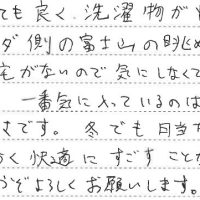 ても良く、洗濯物が
ダ側の富士山の眺め
宅がないので気にしなくて
一番気に入っているのは
さです。冬でも日当た
く快適にすごすこと
うぞよろしくお願いします。